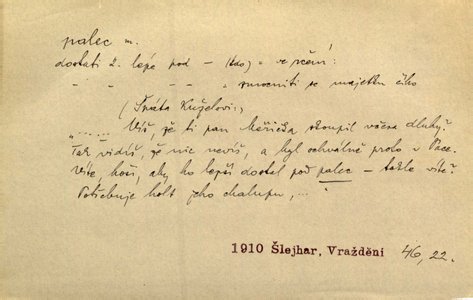 palec m.
dostati 2. lépe pod – (kdo) = ve rčení:
" " " " = zmocniti se majetku čího
(Špáta Kuželovi:)
„...... Víš, že ti pan skoupil včera dluhy?
Tak vidíš, že nic nevíš, a byl ochválně proto v Pace.
Víte, hoši, aby ho lepší dostal pod palec – tohle víte?
Potřebuje holt jeho chalupu, ...
1910 Šlejhar, Vraždění 46, 22.